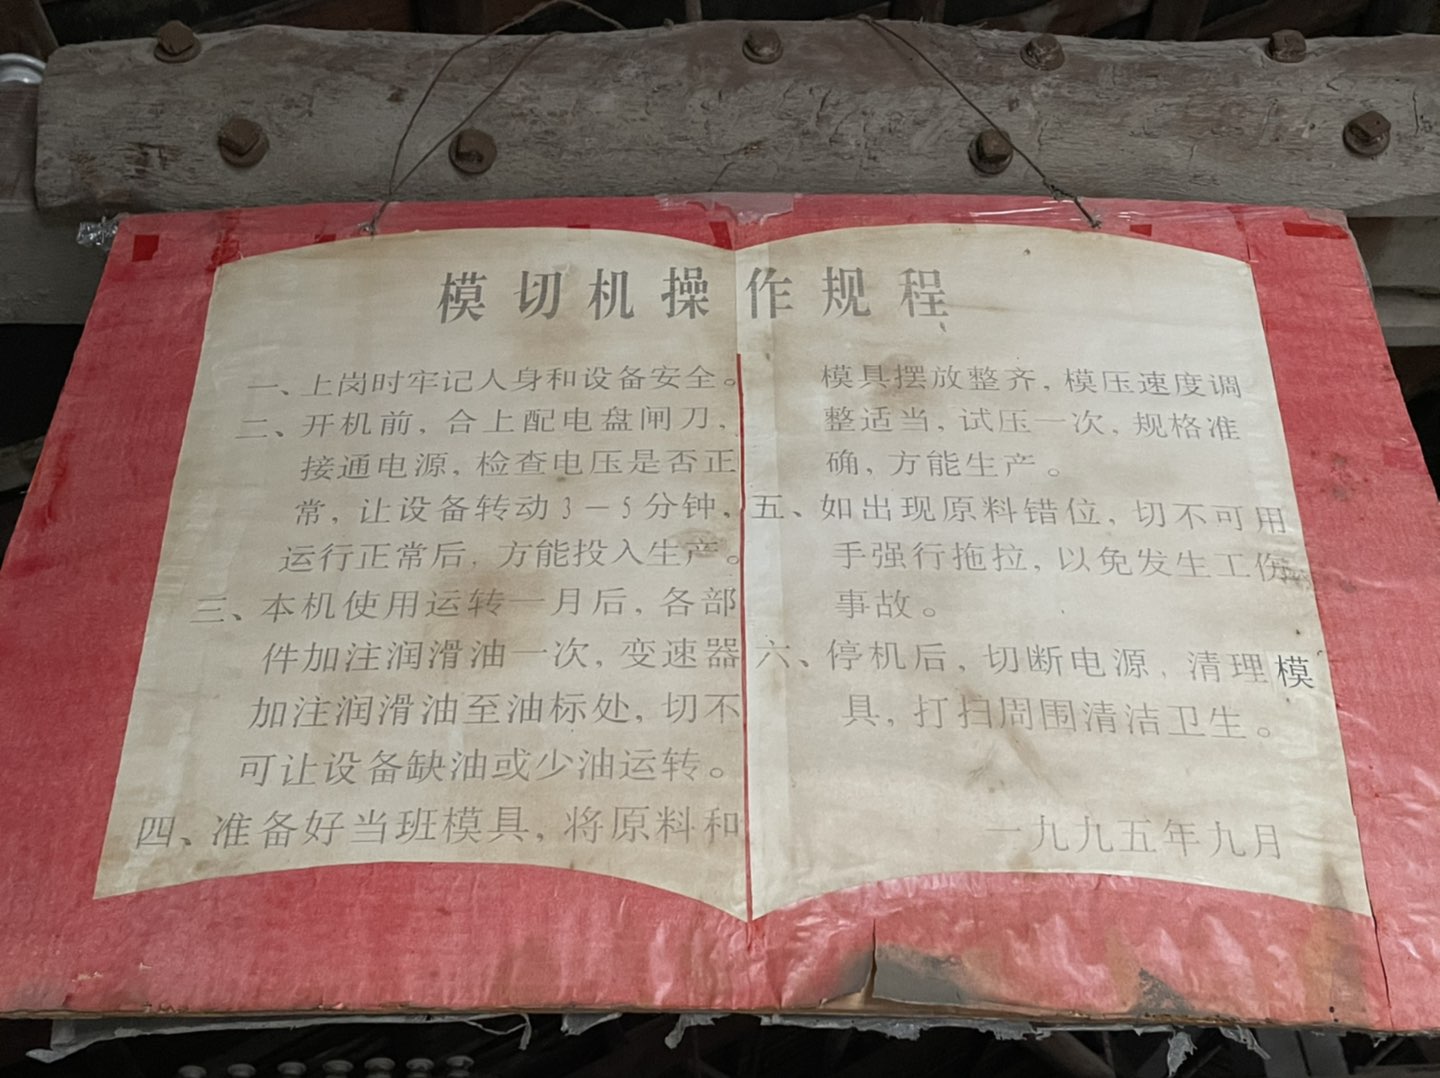 模切机操作规程
一、上岗时牢记人身和设备安全。
二、开机前，合上配电盘闸刀，
接通电源，检查电压是否正
常，让设备转动3－5分钟，
运行正常后，方能投入生产。
三、本机使用运转一月后，各部
件加注润滑油一次，变速器
加注润滑油至油标处，切不
可让设备缺油或少油运转。
四、准备好当班模具，将原料和
模具摆放整齐，模压速度调
整适当，试压一次，规格准
确，方能生产。
五、如出现原料错位，切不可用
手强行拖拉，以免发生工伤
事故。
六、停机后，切断电源，清理模
具，打扫周围清洁卫生。
一九九五年九月